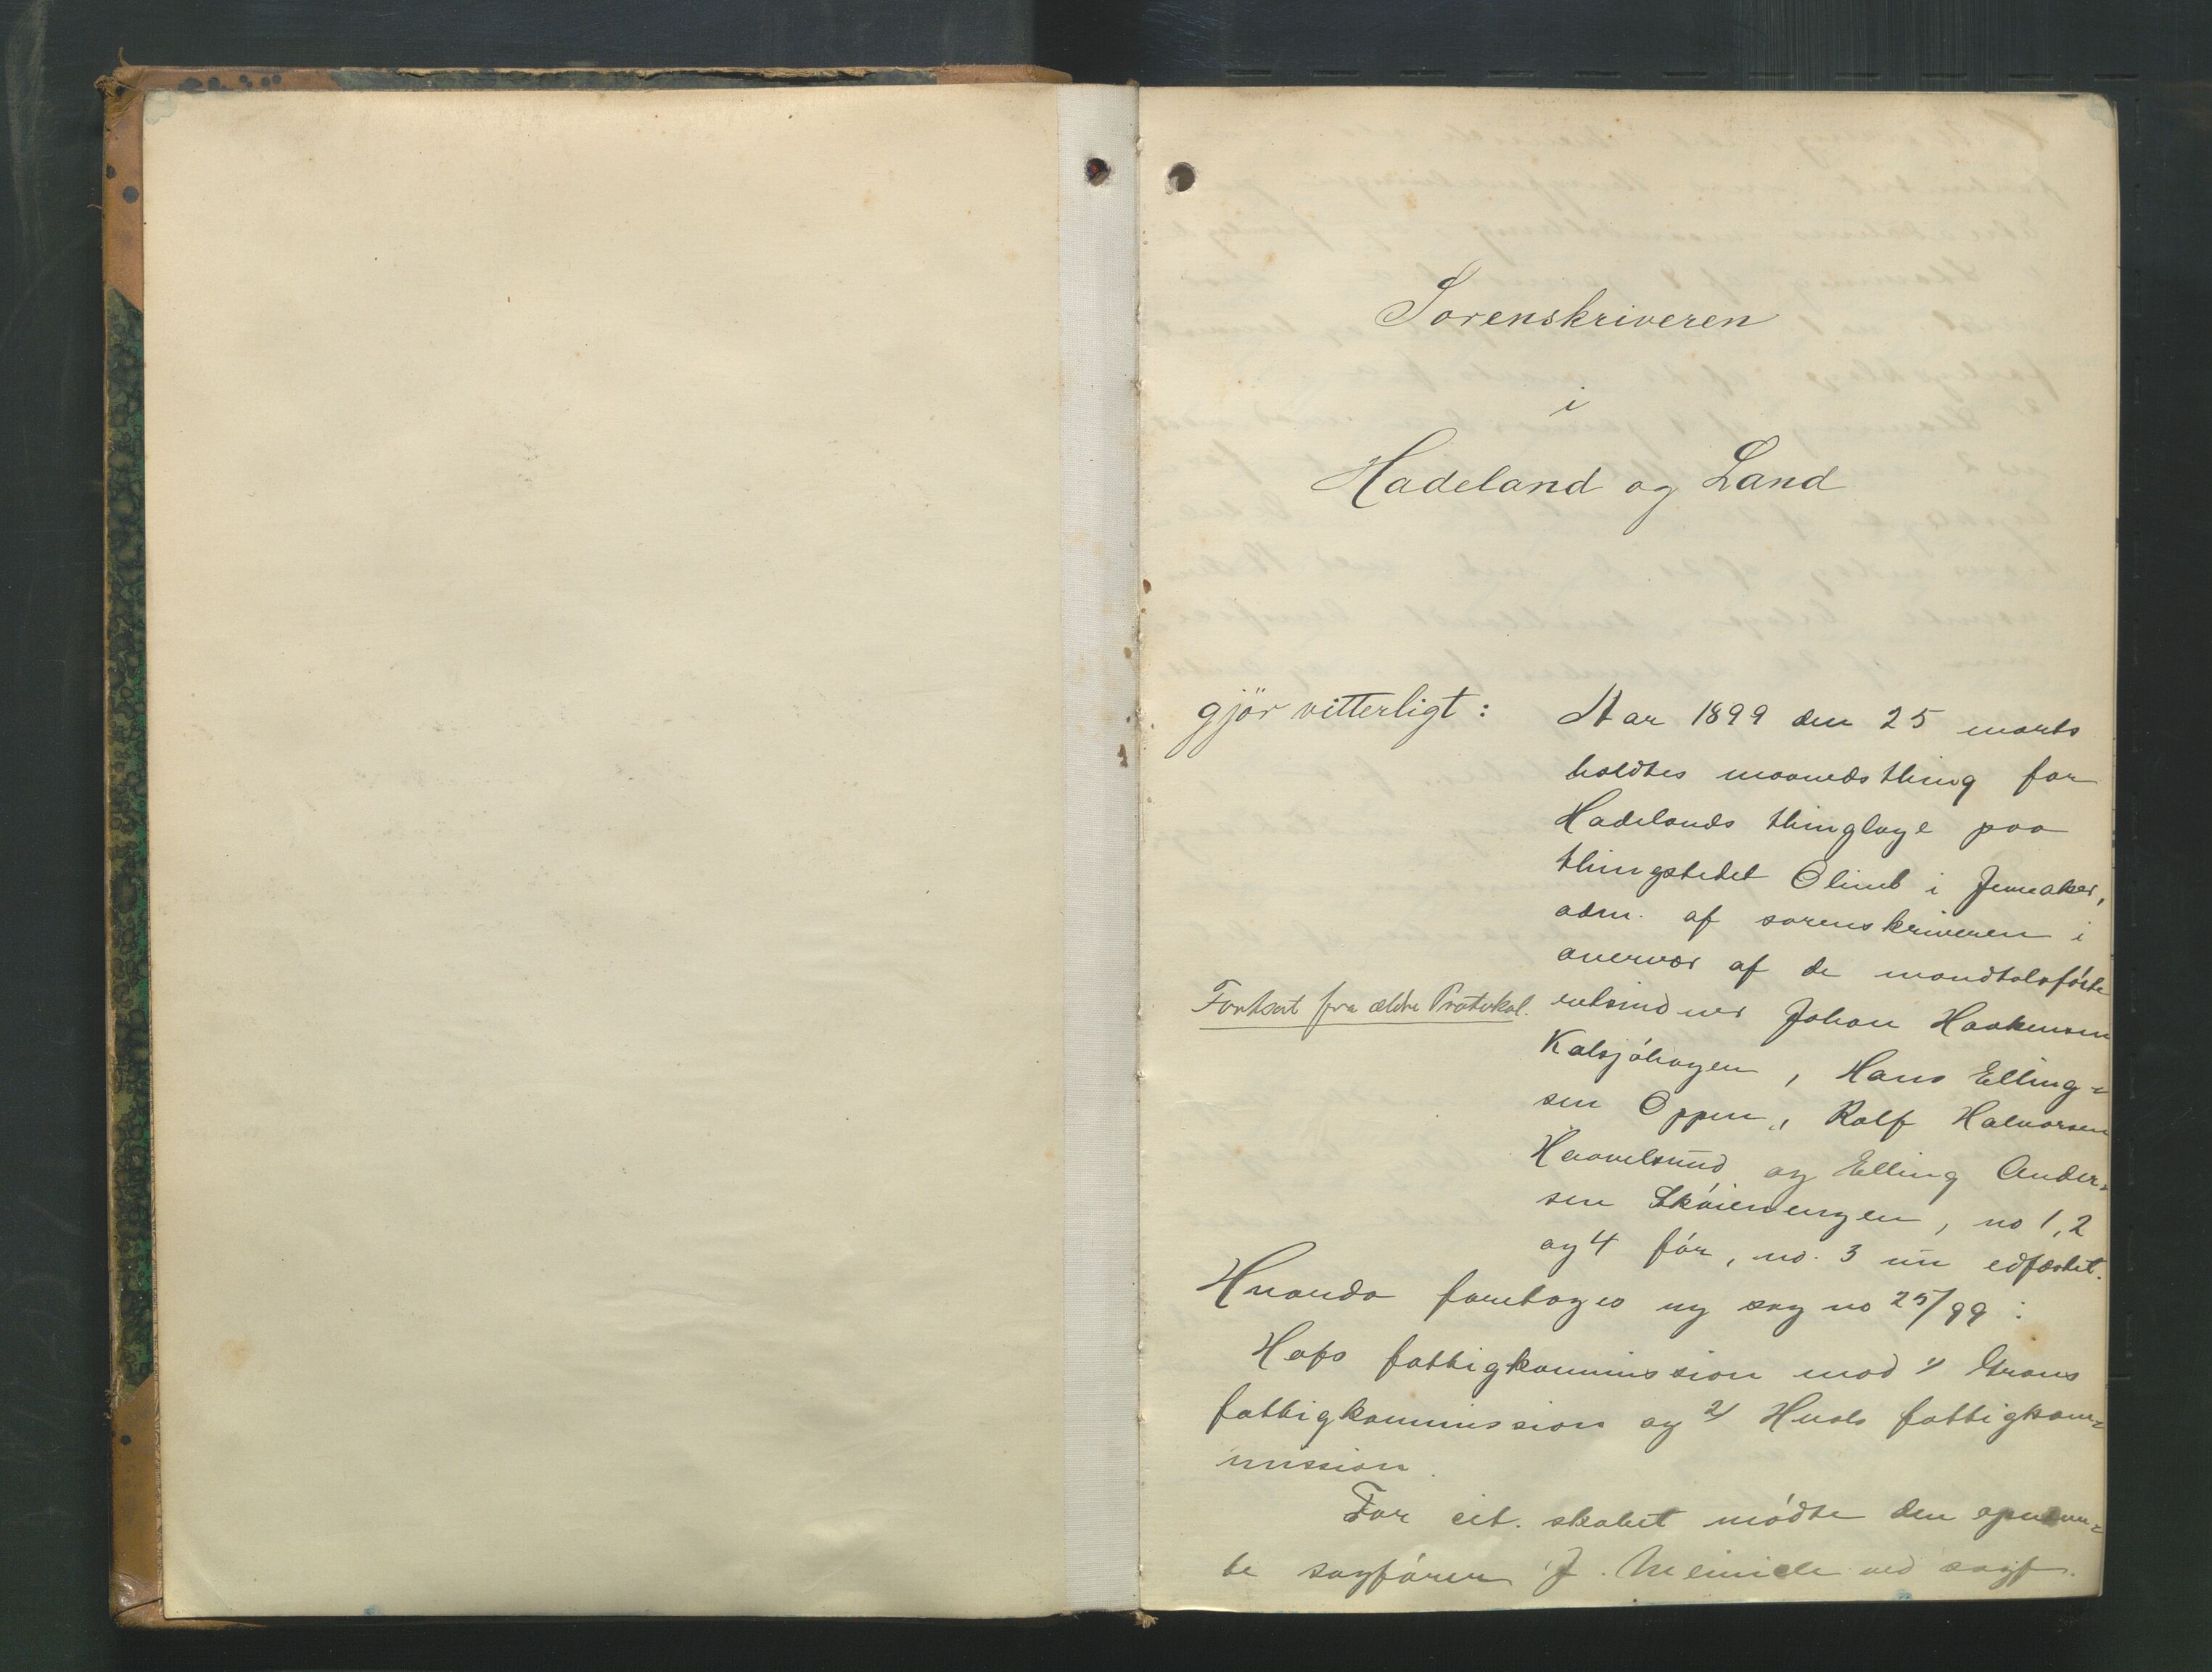 Sorenskriveren
i
Hadeland og Land
gjör vitterligt:
Aar 1899 den 25 marts
holdtes maanedsthing for
Hadelands thinglag paa
thingstedet Olimb i Jevnaker,
adm. af sorenskriveren i
overvær af de mandtalsførte
Fortsat fra ældre Protokol.
retsvidner Johan Haakensen
Kalsjøhagen, Hans Elling-
sen Oppen, Rolf Halvorsen
Haavelsrud og Elling Ander-
sen Skøienengen, no 1, 2
og 4 før, no. 3 nu edfæstet.
Hvorda foretoges ny sag no 25/99:
Hofs fattigkommission mod 1/ Grans
fattigkommission og 2/ Hvals fattigkom-
mission.
For cit. skabet mødte den opnævn-
te sagfører J. Meinich ved sagf.